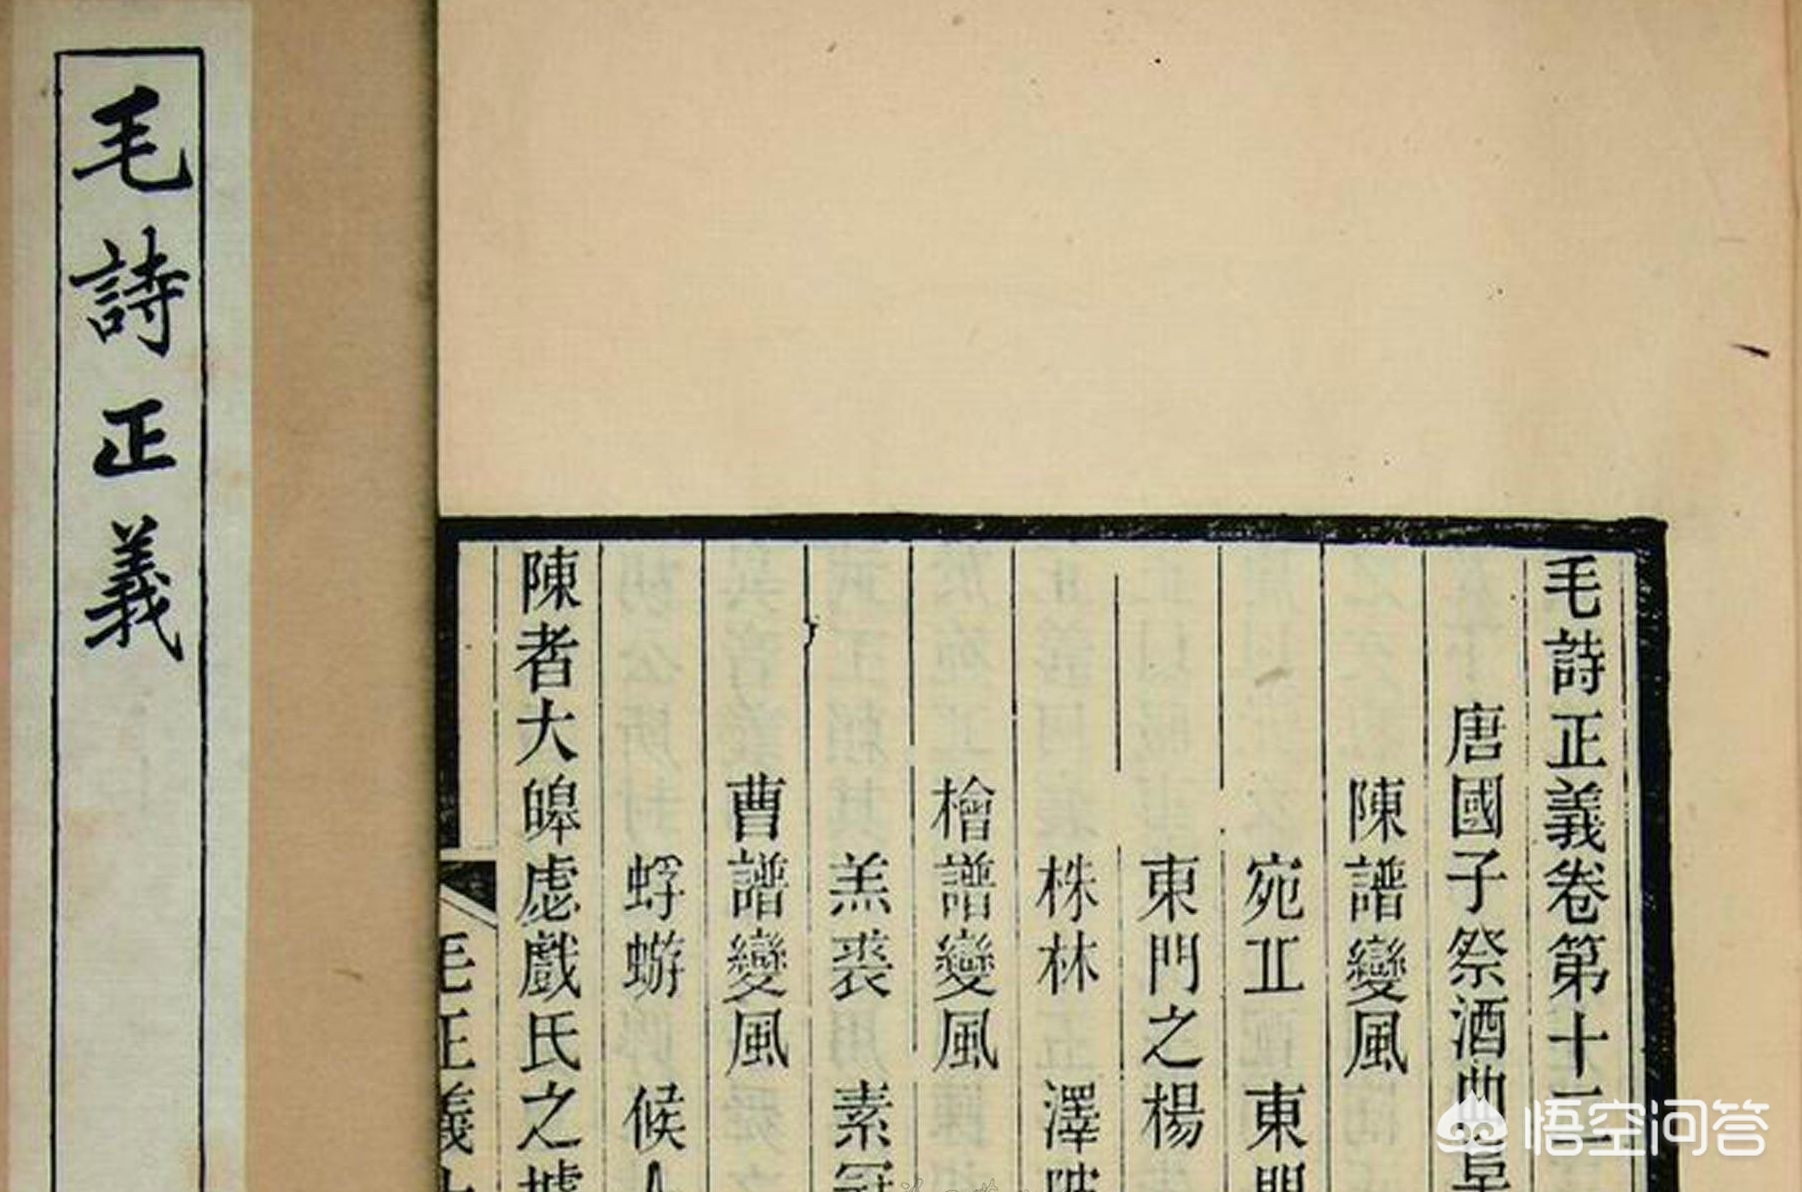 毛詩正義
毛詩正義卷第十二
唐國子祭酒曲阜
陳譜變風
宛丘 東門
東門之楊
株林 澤陂
檜譜變風
羔裘 素冠
曹譜變風
蜉蝣 候人
陳者大皞虙戲氏之墟
毛正義十
悟空问答